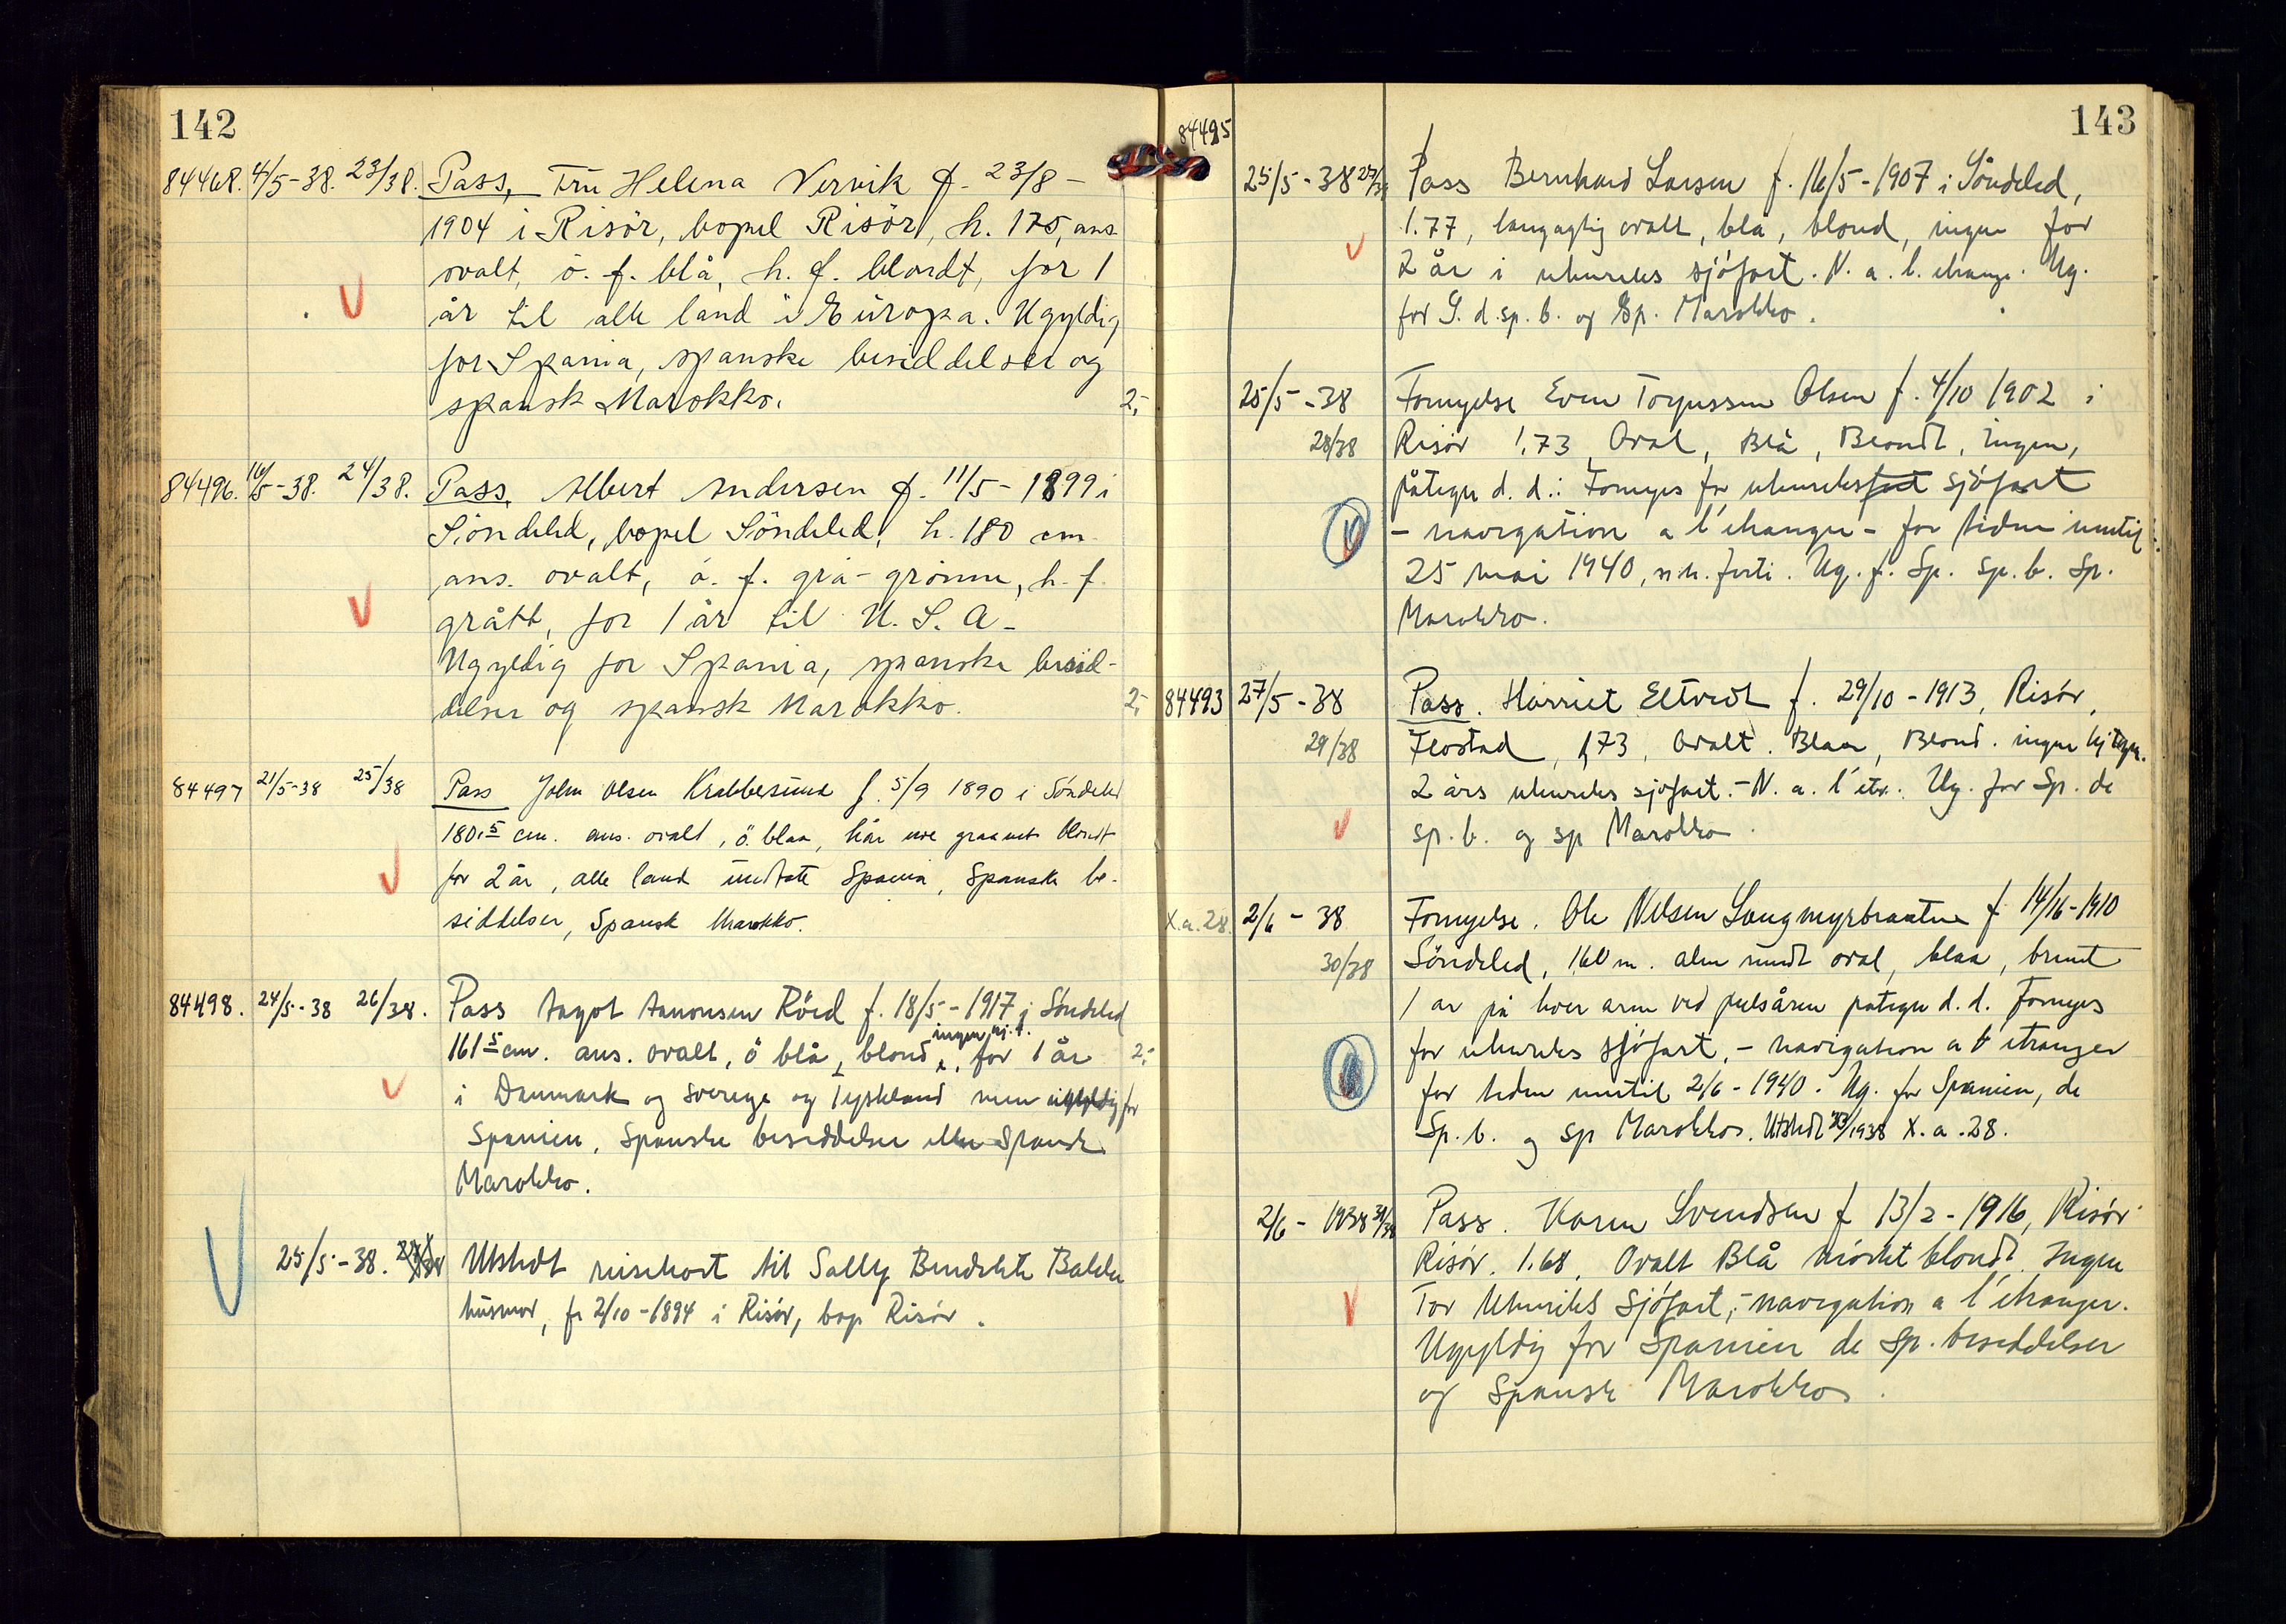 142
84468. 4/5-38. 23/38. Pass, Fru Helena Vervik f. 23/8-
1904 i Risör, bopel Risör, h. 175, ans.
ovalt, ö. f. blå, h. f. blondt, for 1
år til alle land i Europa. Ugyldig
for Spania, spanske besiddelser og
spansk Marokko. 2,-
84496. 16/5-38. 24/38. Pass. Albert Andersen f. 11/5-1899 i
Söndeled, bopel Söndeled, h. 180 cm.
ans. ovalt, ö. f. grå-grönne, h. f.
grått, for 1 år til U. S. A-
Ugyldig for Spania, spanske besid-
delser og spansk Marokko. 2,-
84497 21/5-38 25/38 Pass John Olsen Krabbesund f. 5/9 1890 i Söndeled
180,5 cm. ans. ovalt, ö. blaa, hår graanet blondt
for 2 år, alle land undtatt Spania, Spanske be-
siddelser, Spansk Marokko.
84498. 24/5-38 26/38. Pass Aagot Aanonsen Röed f. 18/5-1917 i Söndeled
ingen kj. t.
161 5 cm. ans. ovalt, ö blå, blond, for 1 år 2,-
i Danmark og Sverige og Tyskland men ugyldig for
Spanien, Spanske besiddelser eller Spansk
Marokko.
25/5-38. Utstedt reisekort til Sally Bendikte
husmor, f. 2/10-1894 i Risör, bop. Risör.
143
84495
25/5-38 27/38 Pass Bernhard Larsen f. 16/5-1907 i Söndeled,
1.77, langagtig ovalt, blå, blond, ingen for
2 år i utenriks sjöfart. N. a. l. etrange. Ug.
for S. d. sp. b. og Sp. Marokko.
25/5-38 Fornyelse Even Torjussen Olsen f. 4/10 1902 i
28/38 Risör 1.73, Oval, Blå, Blondt, Ingen,
påtegn d. d.: Fornyes for utenriksfart sjöfart
- navigation a l'etranger - for tiden inntil
25 mai 1940, Ug. f. Sp. Sp. b. Sp.
Marokko.
84493 27/5-38 Pass. Harriet Eltvedt f. 29/10-1913, Risör,
29/38 Flostad, 1,73, Ovalt. Blaa, Blond. ingen kj tegn.
2 års utenriks sjöfart.- N. a. l'etr. Ug. for Sp. de
sp. b. og sp Marokko.
X.a.28. 2/6-38 Fornyelse. Ole Nilsen Langmyrbraaten f 14/16-1910
30/38 Söndeled, 1.60 m. alm rundt oval, blaa, brunt
1 ar på hver arm ved pulsåren påtegn d. d. Fornyes
for utenriks sjöfart, - navigation a l' etranger
for tiden inntil 2/6-1940. Ug. for Spanien, de
Sp. b. og sp Marokko. Utstedt 1938 X. a. 28.
2/6-1938 31/38 Pass. Karen Svendsen f 13/2-1916, Risör
Risör. 1.68. Ovalt Blå mörket blondt. Ingen
For Utenriks sjöfart,- navigation a l'etranger.
Ugyldig for Spanien de Sp. besiddelser
og Spansk Marokko.